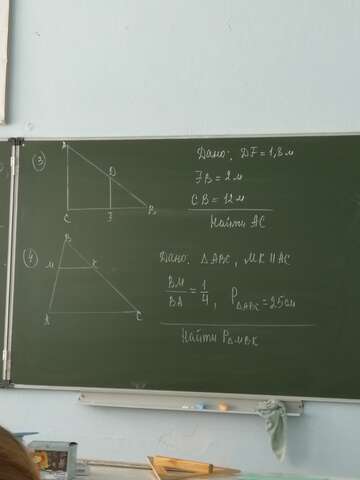 3
A
D
C
F
B
Дано: DF = 1,8 м
FB = 2 м
CB = 12 м
Найти AC
4
B
M
K
A
C
Дано: △ABC, MK || AC
BM/BA = 1/4, P△ABC = 25 см
Найти P△MBK